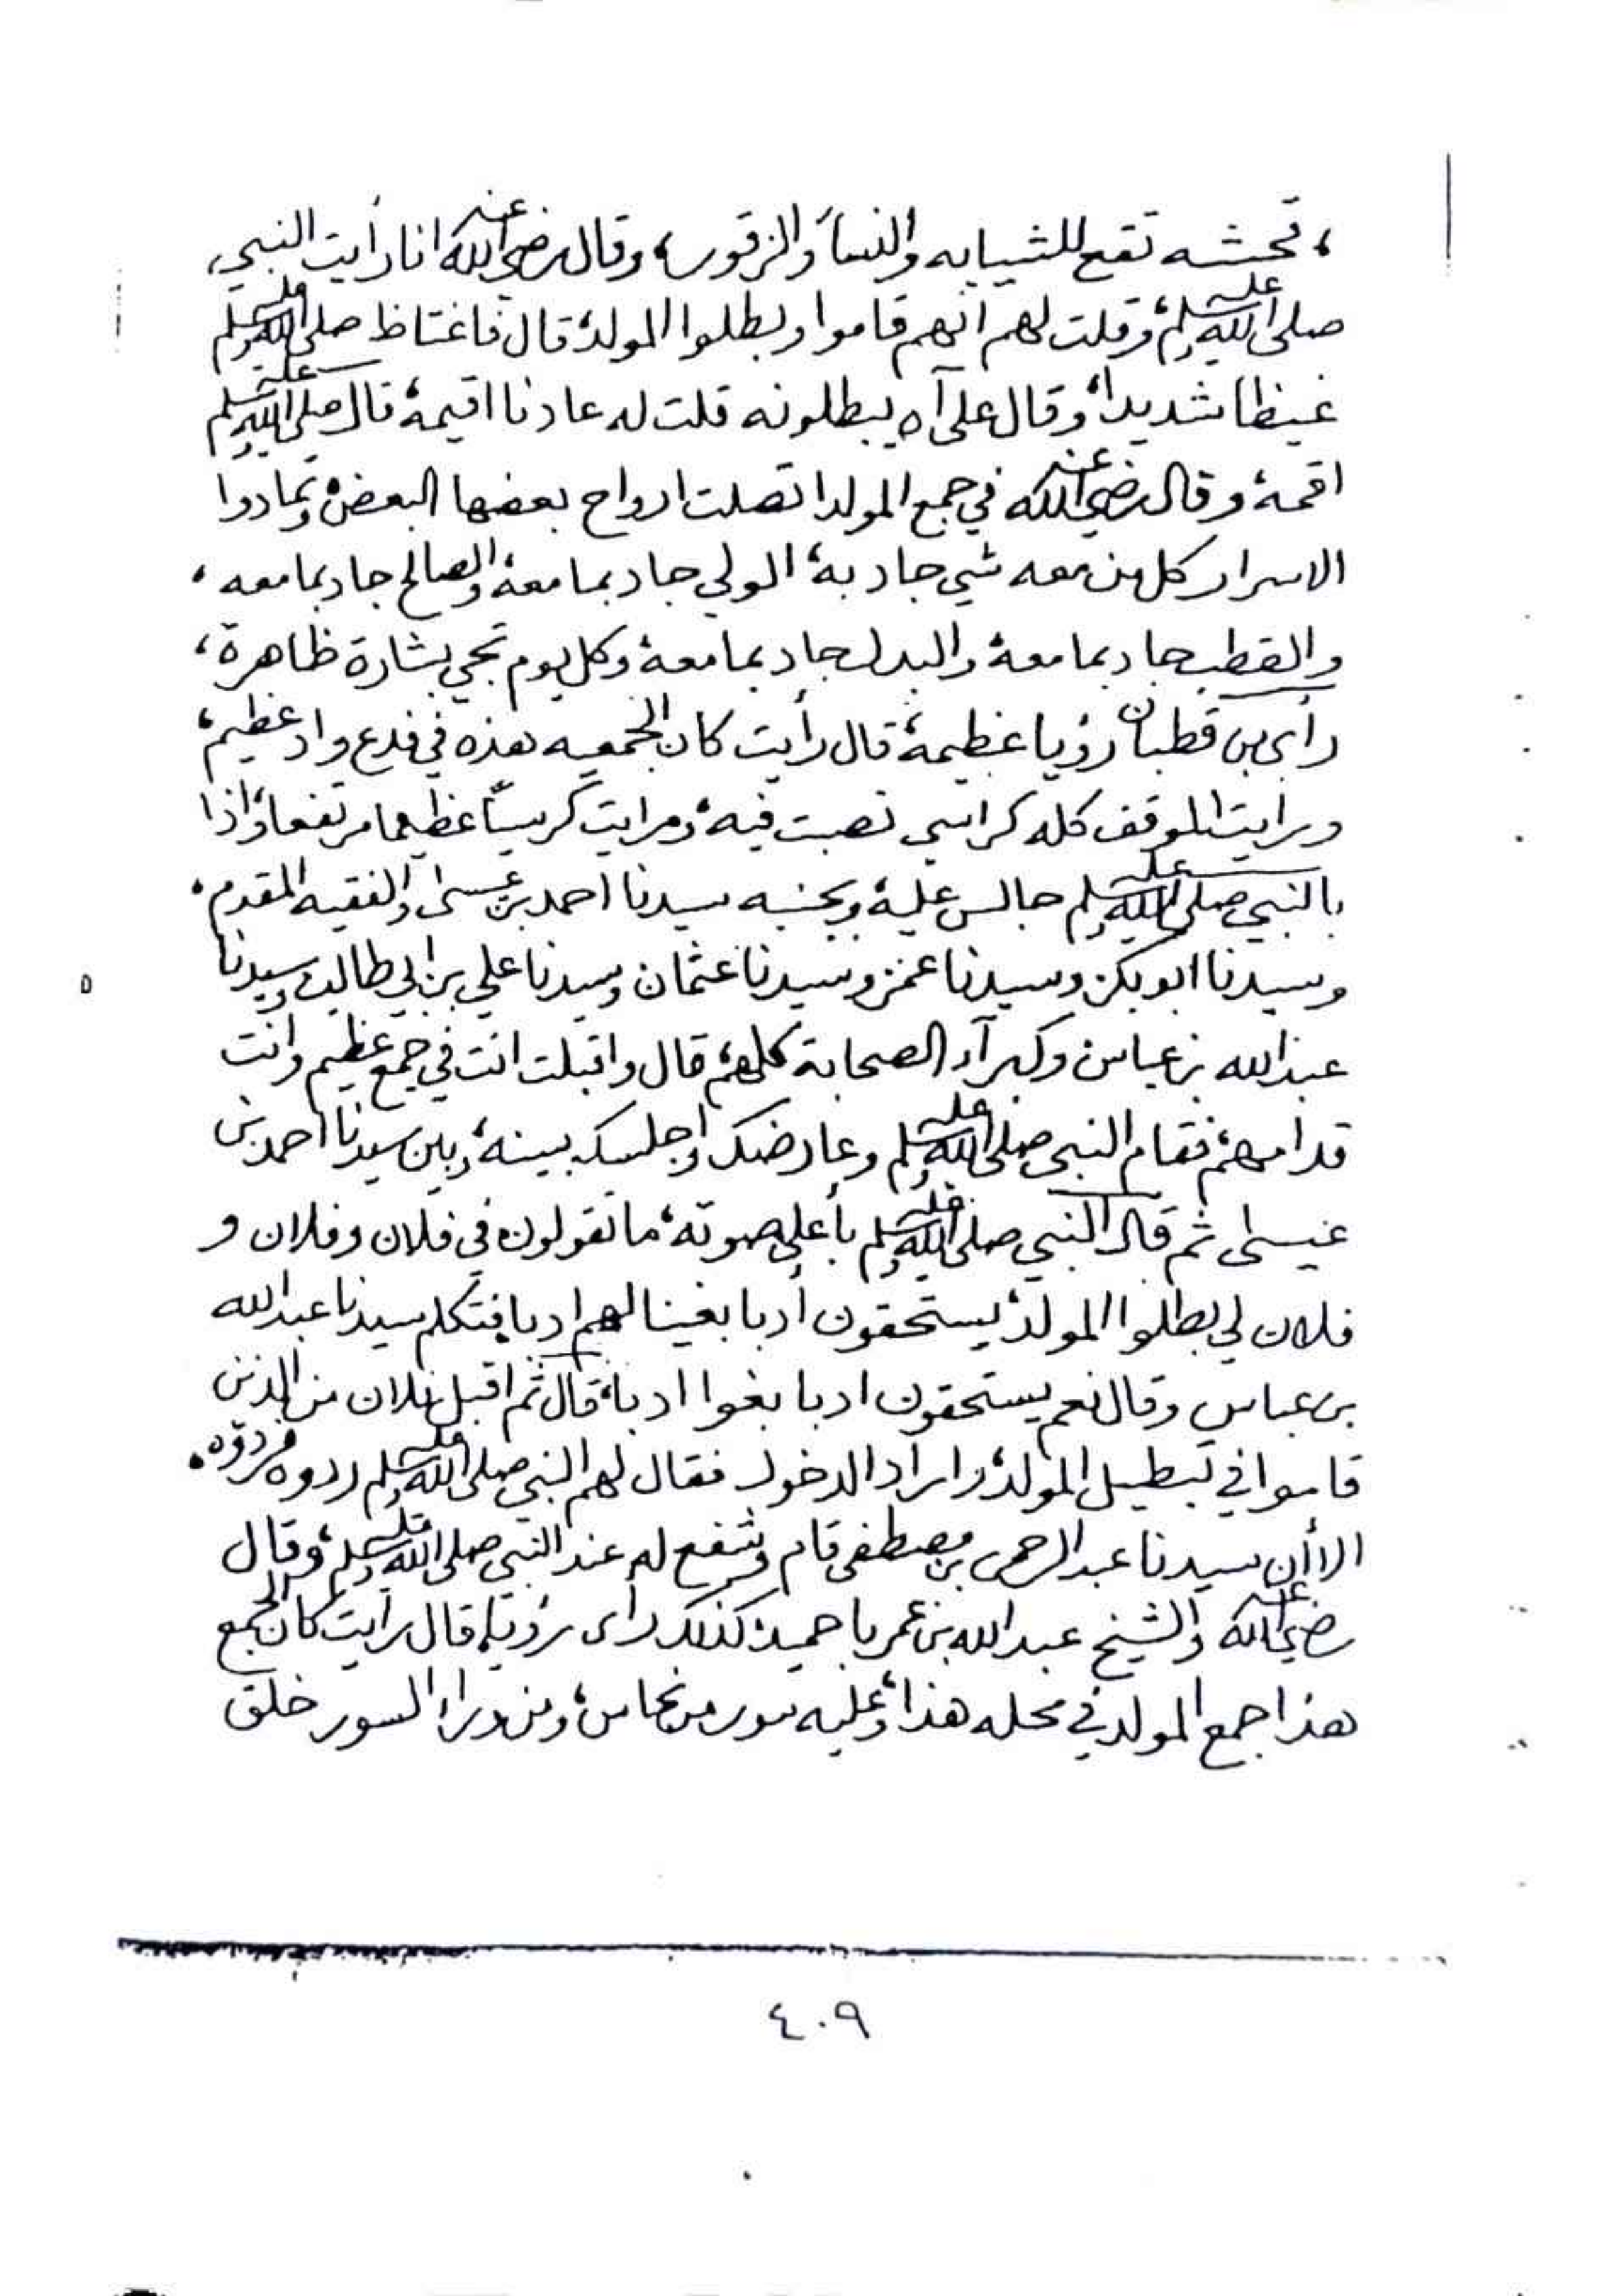 ، تحشه تقع للشيابه والنسأ والزقور، وقال رضي الله عنه انا رأيت النبي،
صلى الله عليه وسلم، وقلت لهم انهم قاموا وبطلوا المولد، قال فاغتاظ صلى الله عليه وسلم
غيظا شديدا، وقال على آه يبطلونه قلت له عادنا اقيمه، قال صلى الله عليه وسلم
اقمه، وقال رضي الله عنه في جمع المولد اتصلت ارواح بعضها البعض، وتمادوا
الاسرار كل من معه شي جاد به، الولي جاد بما معه، والصالح جاد بما معه،
والقطب جاد بما معه، والبدل جاد بما معه، وكل يوم تجي بشارة ظاهرة،
رأى بن قطبان رؤيا عظيمة، قال رأيت كان الجمعيه هذه في فدع واد عظيم،
ورايت الموقف كله كراسي نصبت فيه، ورايت كرسيا عظيما مرتفعا، واذا
بالنبي صلى الله عليه وسلم جالس عليه، وبجنبه سيدنا احمد بن عيسى والفقيه المقدم،
وسيدنا ابوبكر وسيدنا عمر وسيدنا عثمان وسيدنا علي بن ابي طالب وسيدنا
عبدالله بن عباس وكبرآء الصحابة كلهم، قال واقبلت انت في جمع عظيم وانت
قدامهم، فقام النبي صلى الله عليه وسلم وعارضك واجلسك بينه، وبين سيدنا احمد بن
عيسى ثم قال النبي صلى الله عليه وسلم بأعلى صوته، ما تقولون في فلان وفلان و
فلان لي بطلوا المولد، يستحقون أدبا بغينا لهم ادبا، فتكلم سيدنا عبدالله
بن عباس وقال نعم يستحقون ادبا بغوا ادبا، قال ثم اقبل فلان من الذين
قاموا في تبطيل المولد، واراد الدخول فقال لهم النبي صلى الله عليه وسلم ردوه فردوه،
الا أن سيدنا عبدالرحمن بن مصطفى قام وشفع له عند النبي صلى الله عليه وسلم، وقال
رضي الله عنه والشيخ عبدالله بن عمر باحميد كذلك رأى رؤيا، قال رايت كان الجمع
هذا جمع المولد في محله هذا، وعليه سور من نحاس، ومن وراء السور خلق
٤٠٩